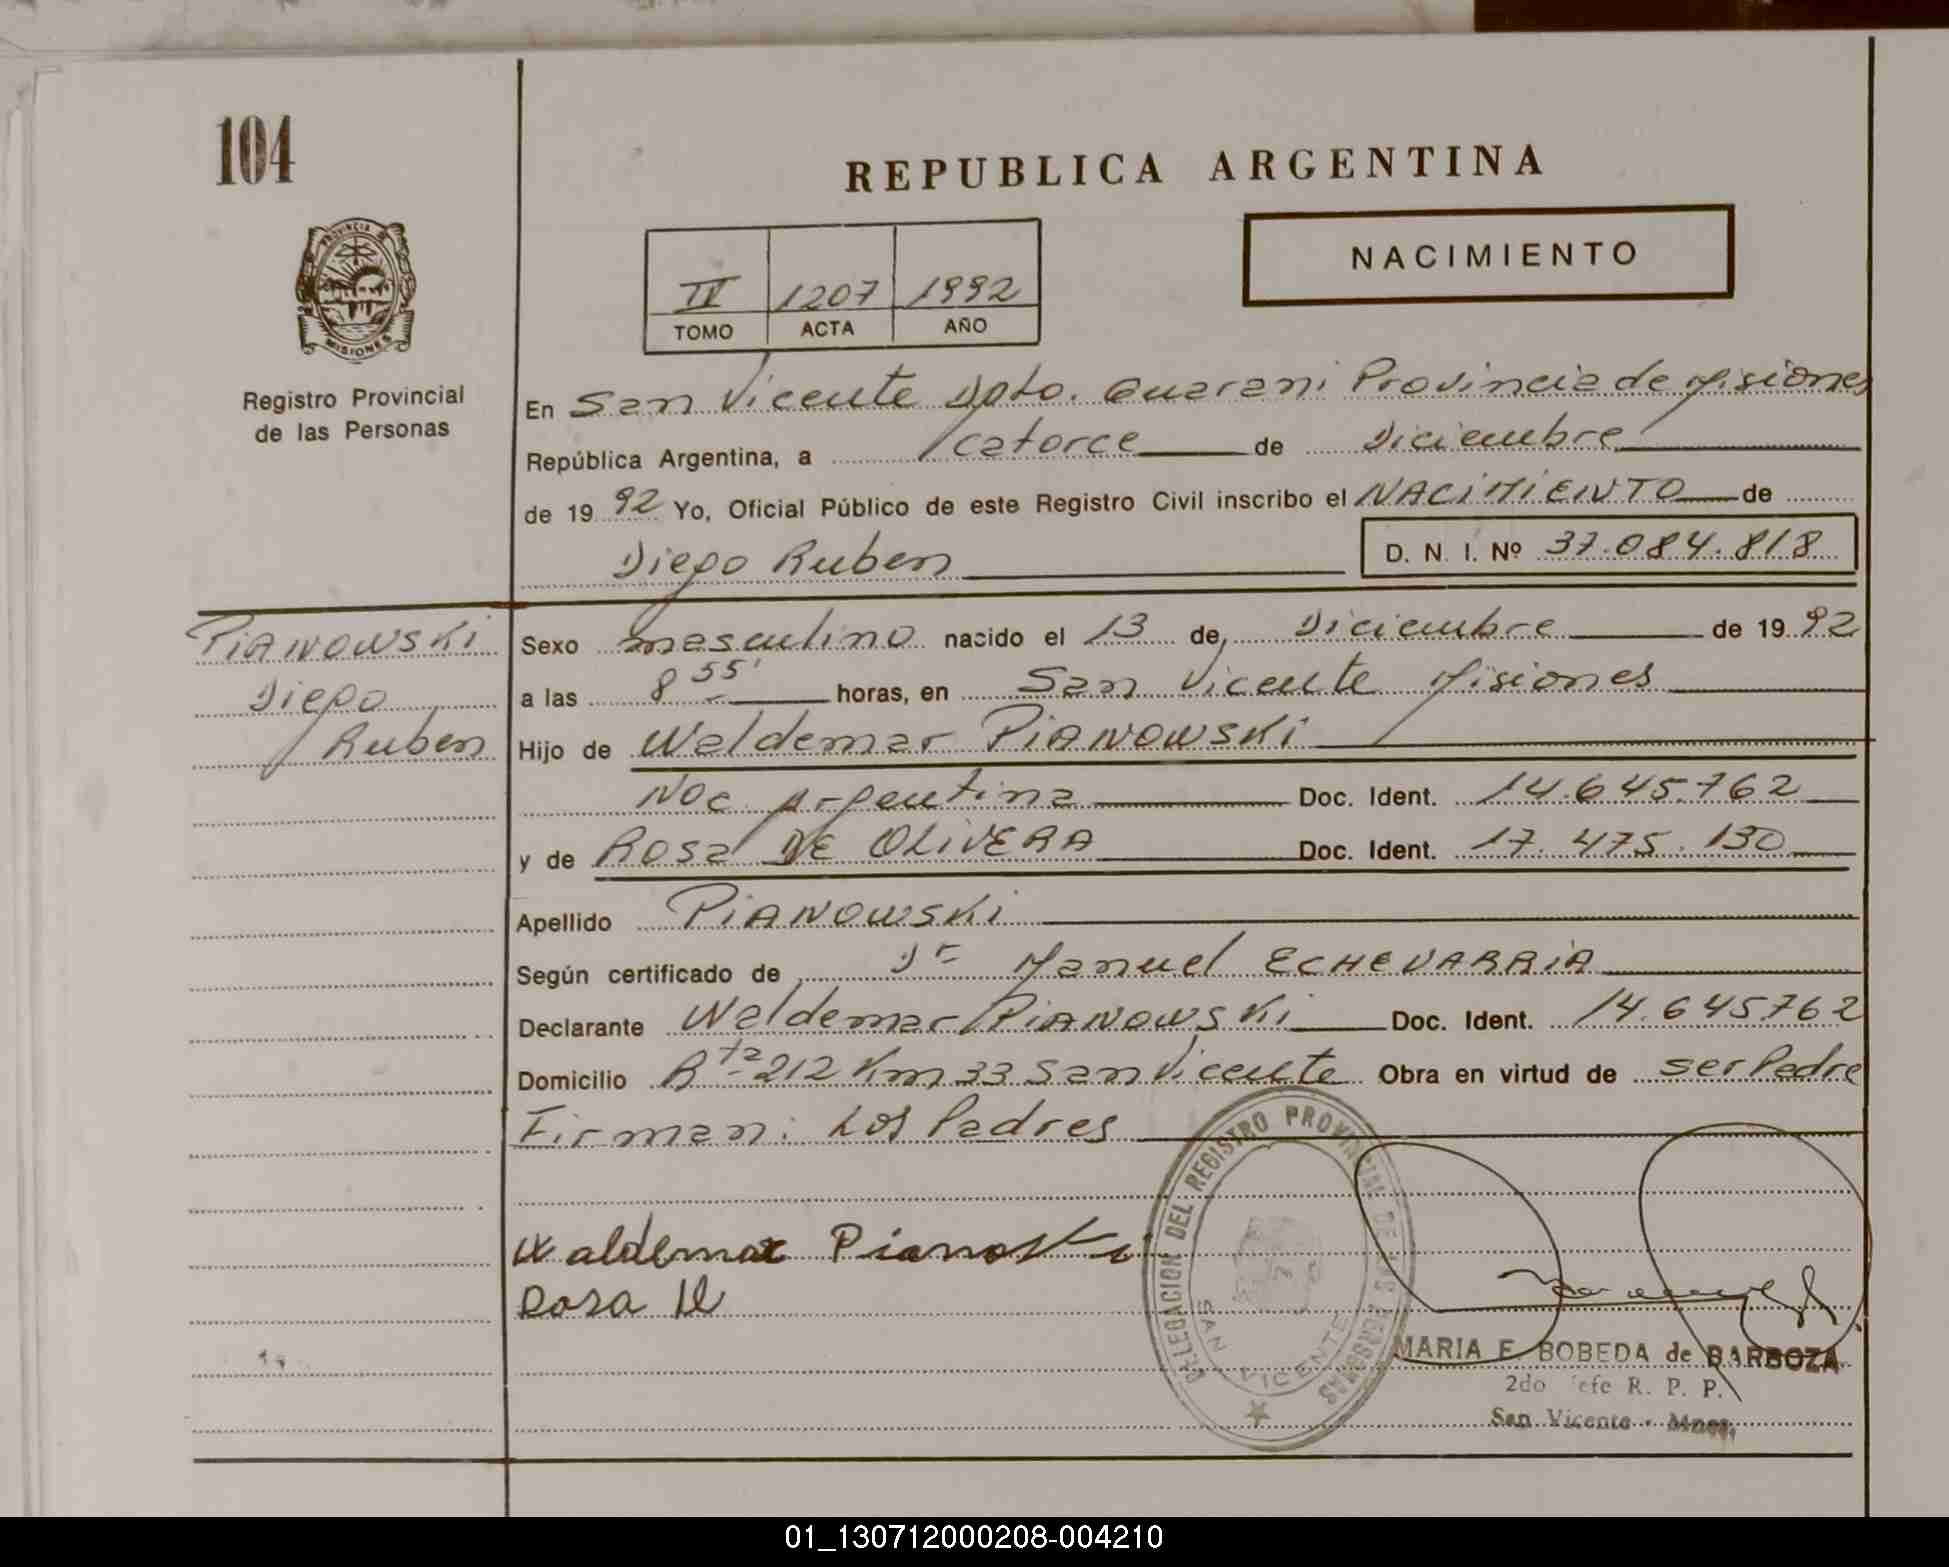 104
REPUBLICA ARGENTINA
NACIMIENTO
IV 1207 1992
TOMO ACTA AÑO
PROVINCIA DE
MISIONES
Registro Provincial
de las Personas
En San Vicente Dpto. Guarani Provincia de Misiones
República Argentina, a catorce de Diciembre
de 1992 Yo, Oficial Público de este Registro Civil inscribo el NACIMIENTO de
Diego Ruben D. N. I. Nº 37.084.818
PIANOWSKI
Diego
Ruben
Sexo masculino nacido el 13 de Diciembre de 1992
a las 8 55' horas, en San Vicente Misiones
Hijo de Waldemar PIANOWSKI
Nac. Argentina Doc. Ident. 14.645.762
y de Rosa DE OLIVERA Doc. Ident. 17.475.130
Apellido PIANOWSKI
Según certificado de Dr Manuel ECHEVARRIA
Declarante Waldemar PIANOWSKI Doc. Ident. 14.645762
Domicilio Rta 212 Km 33 San Vicente Obra en virtud de ser Padre
Firman: Los Padres
Waldemar Pianoski
Rosa D
DELEGACION DEL REGISTRO PROVINCIAL DE LAS PERSONAS
SAN VICENTE
MARIA E. BOBEDA de BARBOZA
2do Jefe R. P. P.
San Vicente - Mnes.
01_130712000208-004210